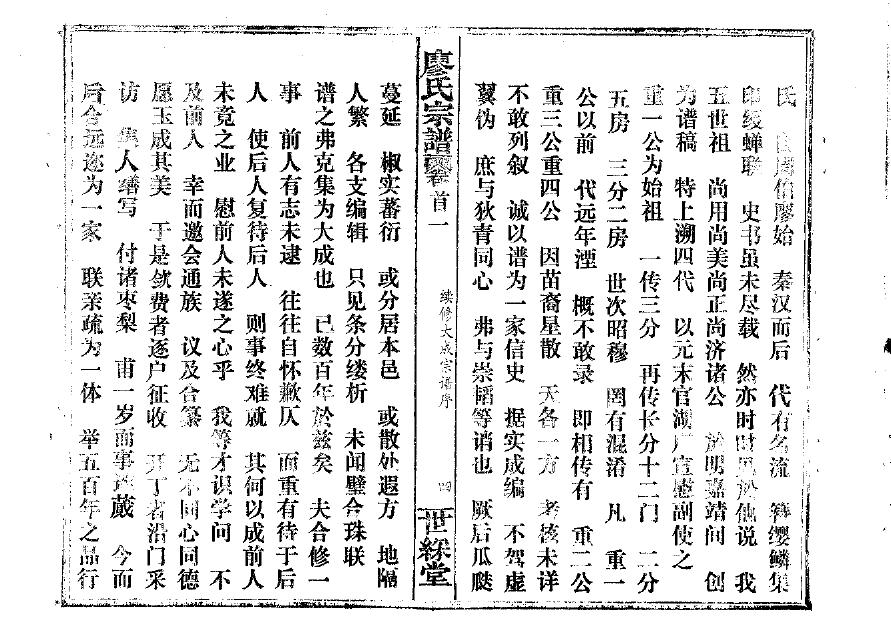 氏 自周伯廖始 秦汉而后 代有名流 簪缨鳞集
印绶蝉联 史书虽未尽载 然亦时时见於他说 我
五世祖 尚用尚美尚正尚济诸公 於明嘉靖间 创
为谱稿 特上溯四代 以元末官湖广宣慰副使之
重一公为始祖 一传三分 再传长分十二门 二分
五房 三分二房 世次昭穆 罔有混淆 凡 重一
公以前 代远年湮 概不敢录 即相传有 重二公
重三公重四公 因苗裔星散 天各一方 考核未详
不敢列叙 诚以谱为一家信史 据实成编 不驾虚
翼伪 庶与狄青同心 弗与崇韬等诮也 厥后瓜瓞
廖氏宗譜 卷首一 续修大成宗谱序 四 世綵堂
蔓延 椒实蕃衍 或分居本邑 或散处遐方 地隔
人繁 各支编辑 只见条分缕析 未闻璧合珠联
谱之弗克集为大成也 已数百年於兹矣 夫合修一
事 前人有志未逮 往往自怀歉仄 而重有待于后
人 使后人复待后人 则事终难就 其何以成前人
未竟之业 慰前人未遂之心乎 我等才识学问 不
及前人 幸而邀会通族 议及合纂 无不同心同德
愿玉成其美 于是敛费者逐户征收 开丁者沿门采
访 集人缮写 付诸枣梨 甫一岁而事遂蒇 今而
后合远迩为一家 联亲疏为一体 举五百年之品行